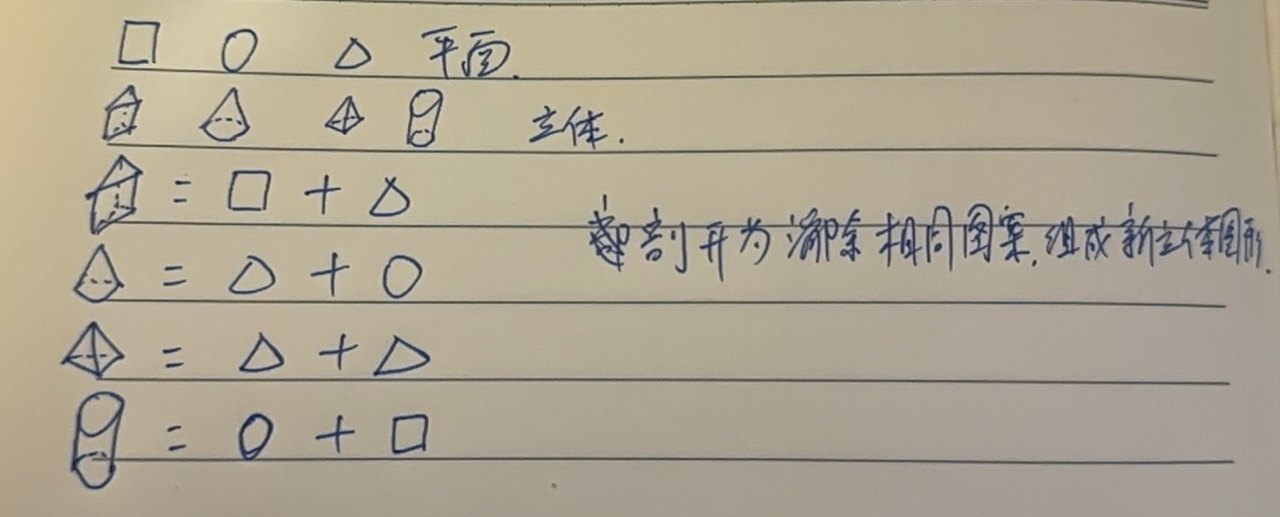 □ ○ △ 平面.
立体.
= □ + △
剖开为消除相同图案,组成新立体图形.
= △ + ○
= △ + △
= ○ + □